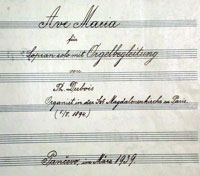 Ave Maria
für
Sopran solo mit Orgelbegleitung
von
Th. Dubois
Organist in der Magdalenenkirche zu Paris
Pančevo, im März 1939.